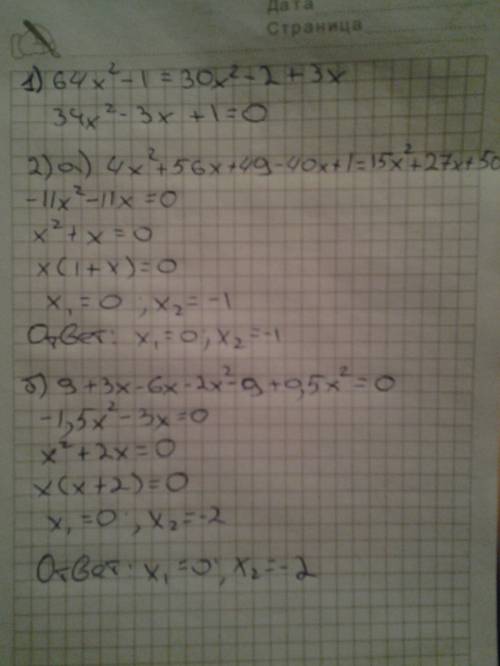 Дата
Страница
1) 64x² - 1 = 30x² - 2 + 3x
34x² - 3x + 1 = 0
2) а) 4x² + 56x + 49 - 40x + 1 = 15x² + 27x + 50
-11x² - 11x = 0
x² + x = 0
x(1 + x) = 0
x₁ = 0 ; x₂ = -1
Ответ: x₁ = 0 ; x₂ = -1
б) 9 + 3x - 6x - 2x² - 9 + 0,5x² = 0
-1,5x² - 3x = 0
x² + 2x = 0
x(x + 2) = 0
x₁ = 0 ; x₂ = -2
Ответ: x₁ = 0 ; x₂ = -2